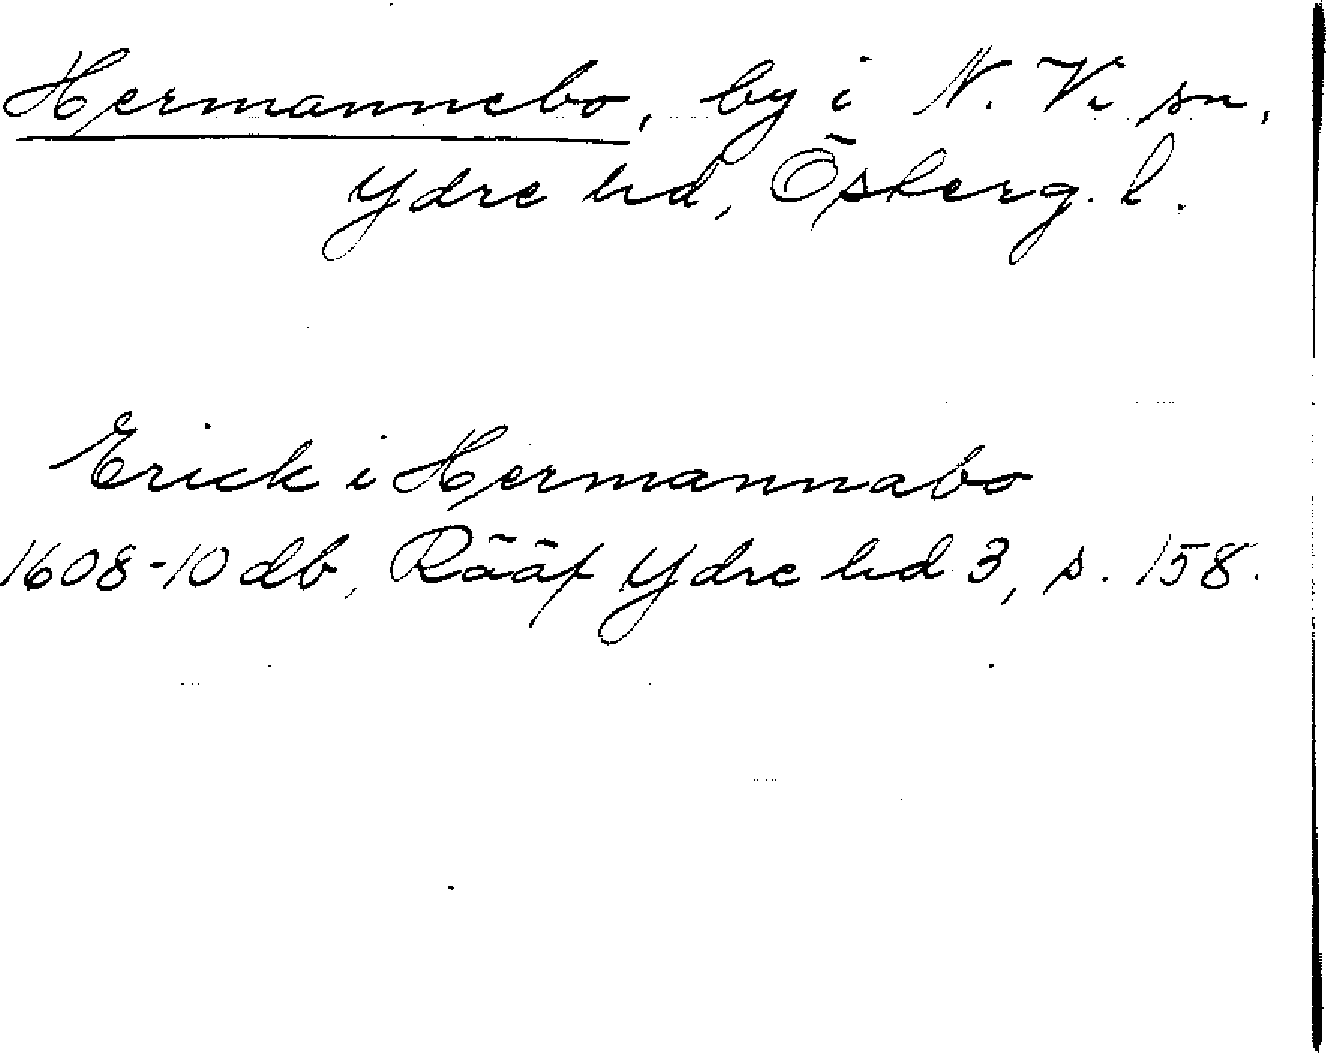 Hermannebo, by i N. Vi sn,
Ydre hd, Östberg. l.
Erick i Hermannabo
1608-10 db, Rääf Ydre hd 3, s. 158.